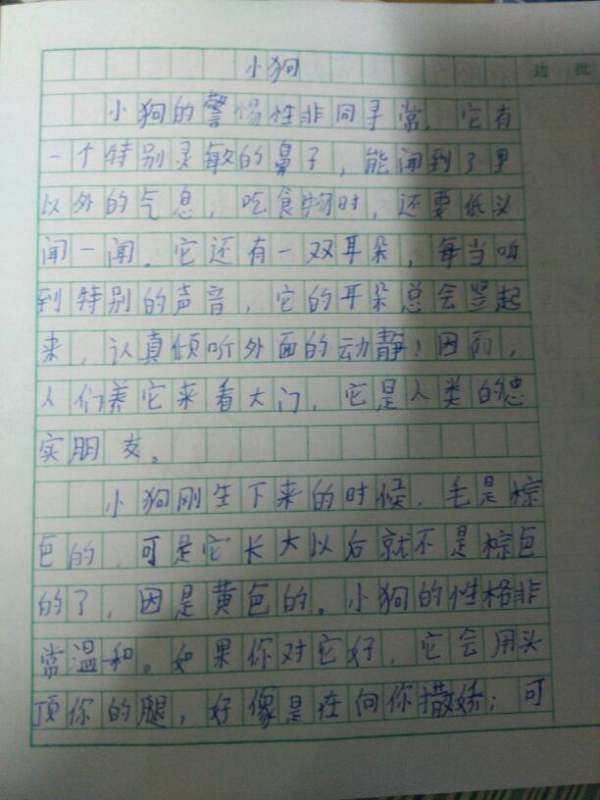 小狗
边批
小狗的警惕性非同寻常，它有
一个特别灵敏的鼻子，能闻到了里
以外的气息，吃食物时，还要低头
闻一闻。它还有一双耳朵，每当听
到特别的声音，它的耳朵总会竖起
来，认真倾听外面的动静！因而，
人们养它来看大门，它是人类的忠
实朋友。
小狗刚生下来的时候，毛是棕
色的，可是它长大以后就不是棕色
的了，因是黄色的。小狗的性格非
常温和。如果你对它好，它会用头
顶你的腿，好像是在向你撒娇；可